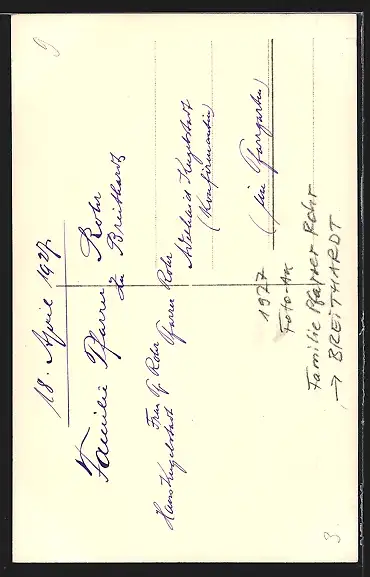 18. April 1927
Familie Pfarrer Rohr
zu Breithardt
Frau Pf. Rohr Pfarrer Rohr
Hans Kugelstadt
Adelheid Kugelstadt
(Konfirmantin)
(im Pfarrgarten)
1927
Foto-AK
Familie Pfarrer Rohr
→ BREITHARDT
3.